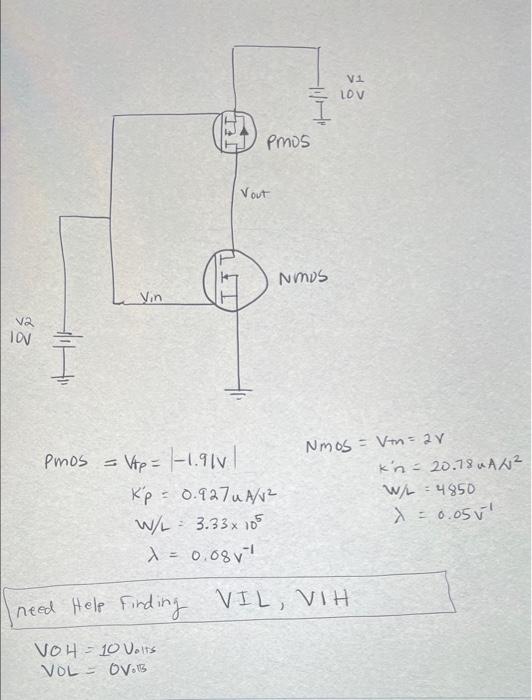 V1
10V
PMOS
Vout
NMOS
Vin
V2
10V
PMOS = Vtp = |-1.91V|
K'p = 0.927uA/V²
W/L = 3.33 x 10⁵
λ = 0.08V⁻¹
NMOS = Vtn = 2V
K'n = 20.78uA/V²
W/L = 4850
λ = 0.05V⁻¹
need Help Finding VIL, VIH
VOH = 10 Volts
VOL = 0 Volts